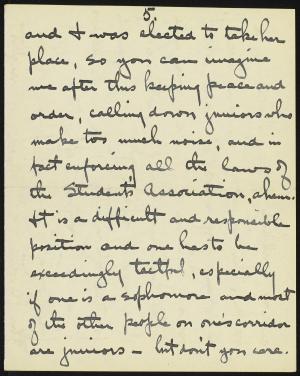 5.
and I was elected to take her
place, so you can imagine
me after this keeping peace and
order, calling down juniors who
make too much noise, and in
fact enforcing all the laws of
the Students' Association, ahem.
It is a difficult and responsible
position and one has to be
exceedingly tactful, especially
if one is a sophomore and most
of the other people on one's corridor
are juniors – but don't you care.